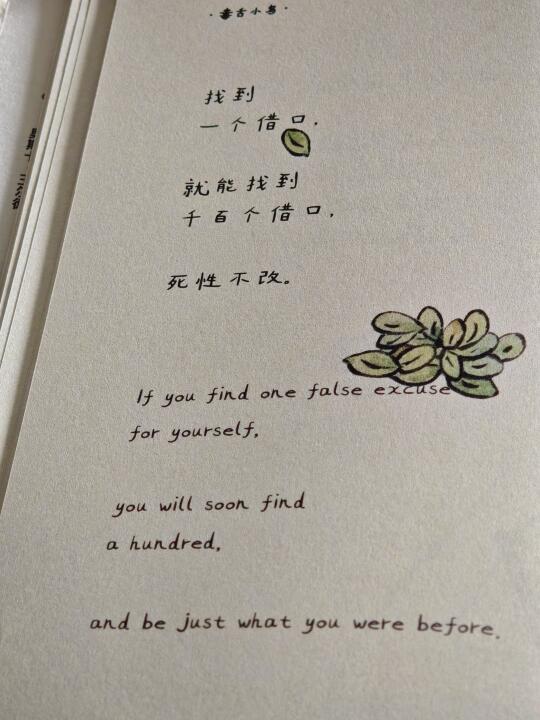 ·毒舌小鸟·
找到
一个借口，
就能找到
千百个借口，
死性不改。
If you find one false excuse
for yourself,
you will soon find
a hundred,
and be just what you were before.